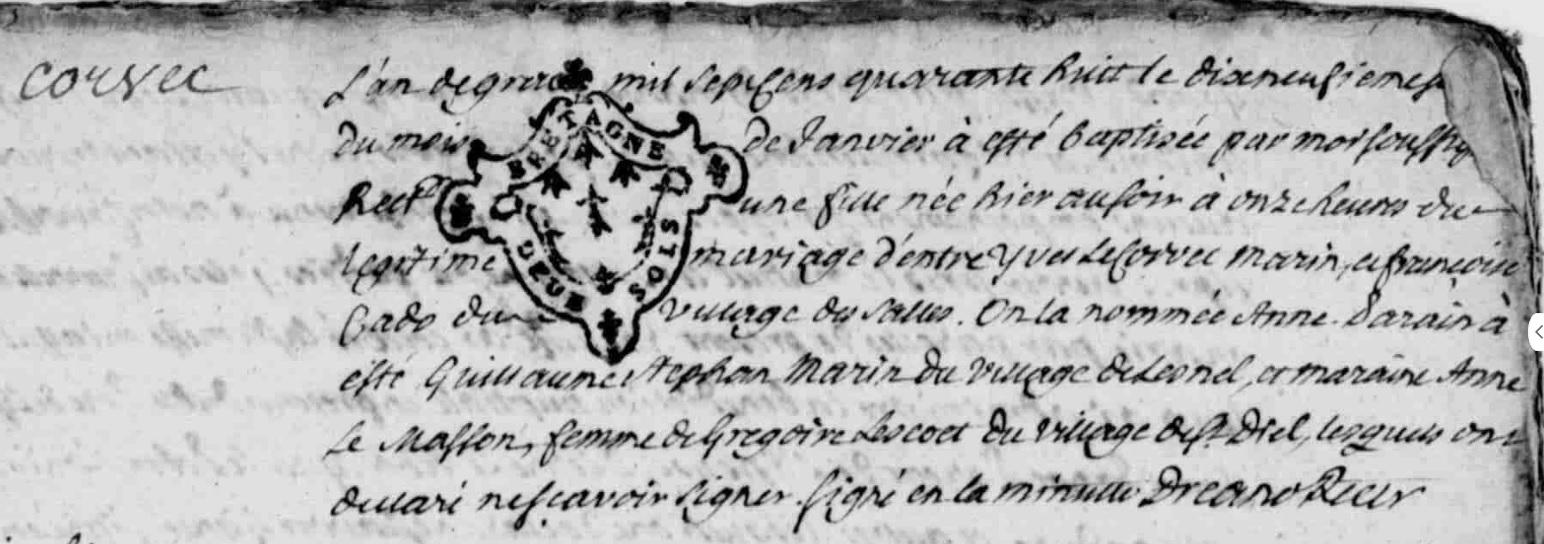 corvec
L'an de grace mil sept cens quarante huit le dixneufieme
du mois de Janvier à esté baptisée par moi soussig
Rect^r une fille née hier au soir à onze heures du
legitime mariage d'entre Yves Le Corvec marin, et françoise
Cado du village des salles. On la nommée Anne. Parain à
esté Guillaume Stephan Marin du village de Lesnel, et maraine Anne
Le Masson, femme de Gregoire Lescoet du village de St. Diel, lesquels ont
declaré ne sçavoir signer. signé en la minutte Dreano Recr
BRETAGNE
DEUX SOLS